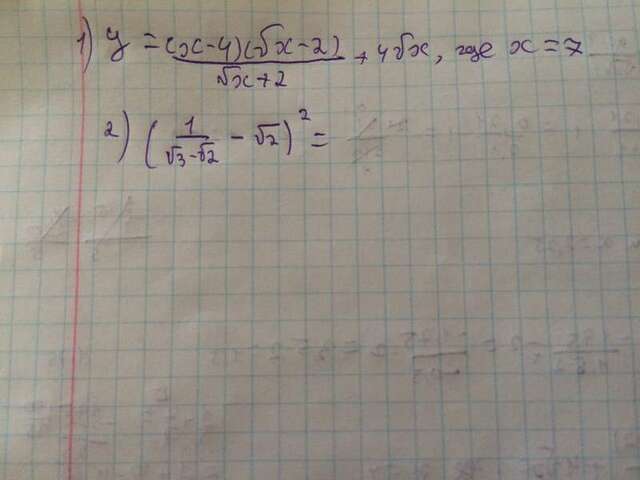 1) y = (x-4)(√x-2)/(√x+2) + 4√x, где x = 7
2) (1/(√3-√2) - √2)² =